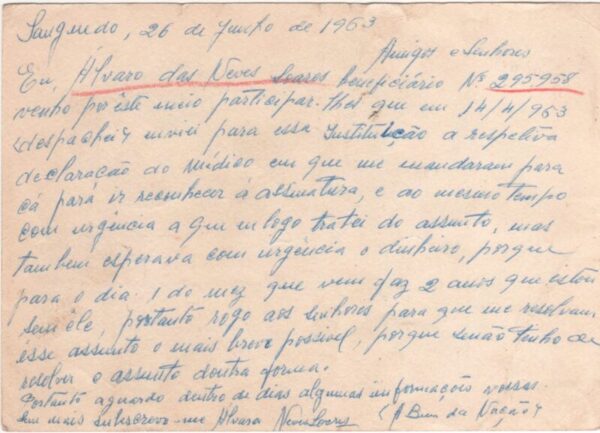 Sanguedo, 26 de Junho de 1963
Amigos e Senhores
Eu, Álvaro das Neves Soares beneficiário Nº 295958
venho por êste meio participar-lhes que em 14/4/963
<despachei> enviei para essa Instituição a respetiva
declaração do médico em que me mandaram para
cá pará ir reconhecer á assinatura, e ao mesmo tempo
com urgência a que eu logo tratei do assunto, mas
tambem esperava com urgência o dinheiro, porque
para o dia 1 do mez que vem faz 2 anos que estou
sem êle, portanto rogo aos senhores para que me resolvam
êsse assunto o mais breve possivel, porque senão tenho de
resolver o assunto doutra forma.
Portanto aguardo dentro de dias algumas informações vossas
Sem mais subscrevo-me Álvaro Neves Soares <A Bem da Nação>